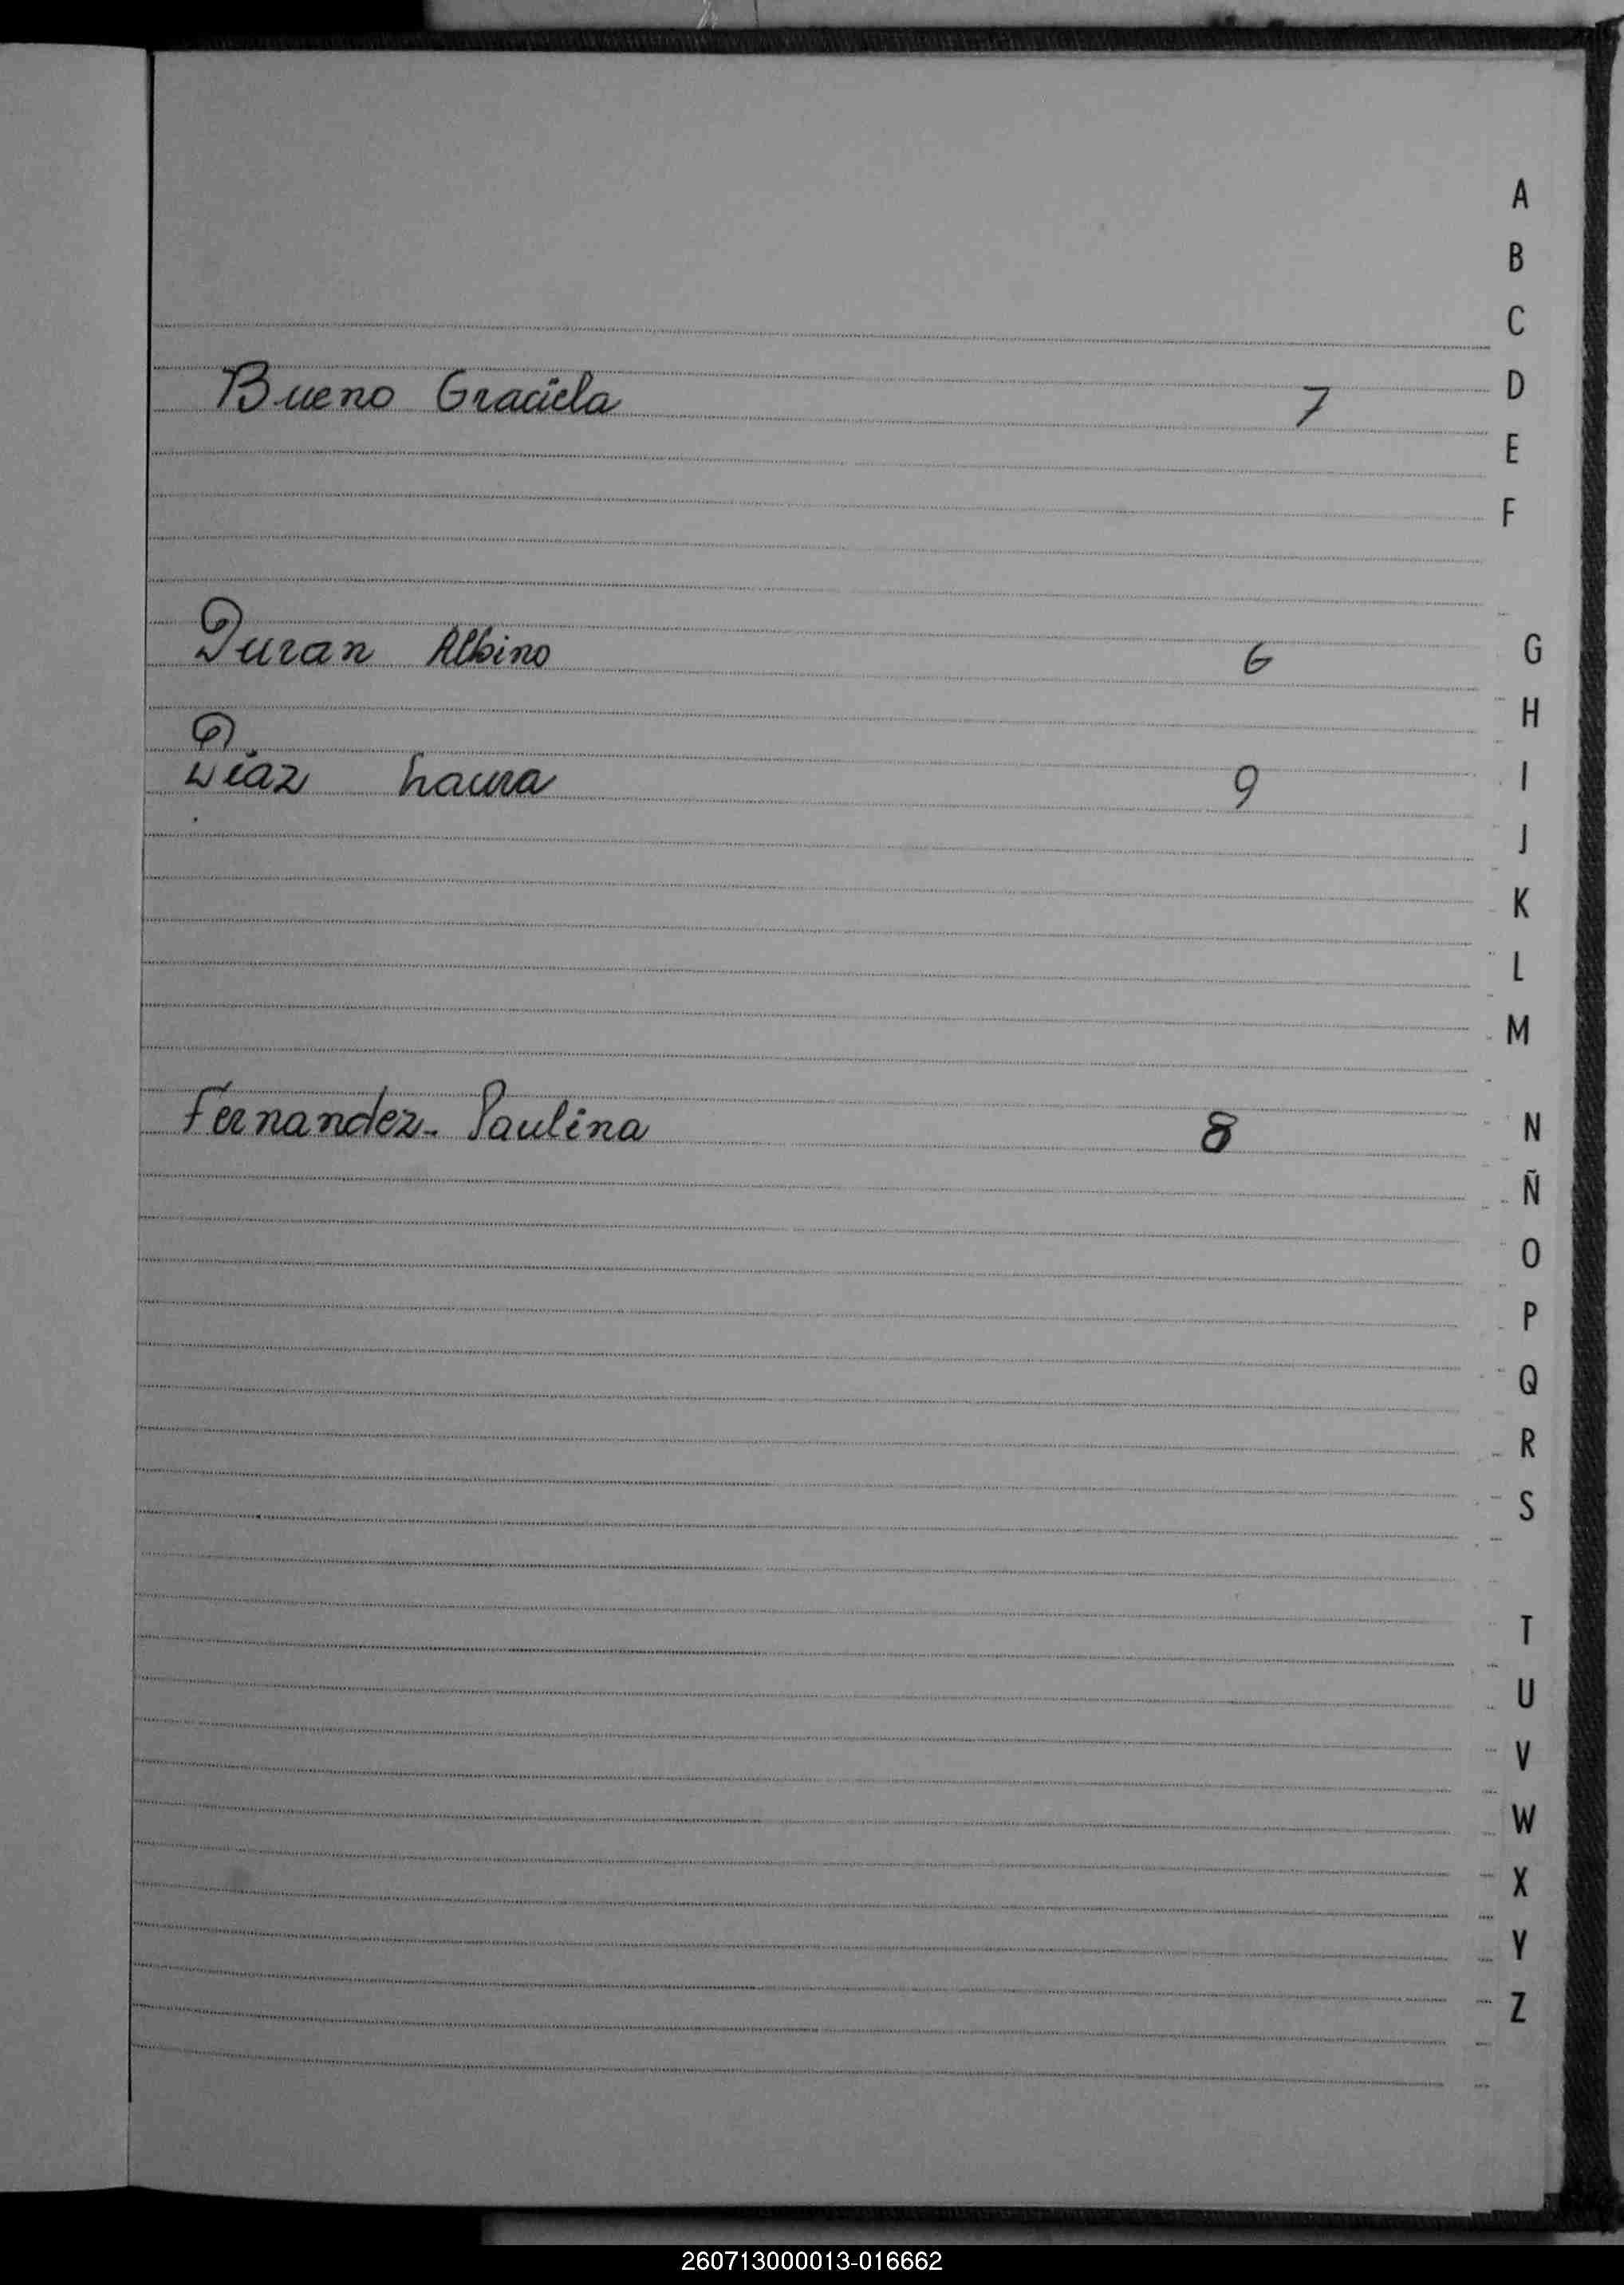 A
B
C
Bueno Graciela 7 D
E
F
Duran Albino 6 G
H
Diaz Laura 9 I
J
K
L
M
Fernandez. Paulina 8 N
Ñ
O
P
Q
R
S
T
U
V
W
X
Y
Z
260713000013-016662